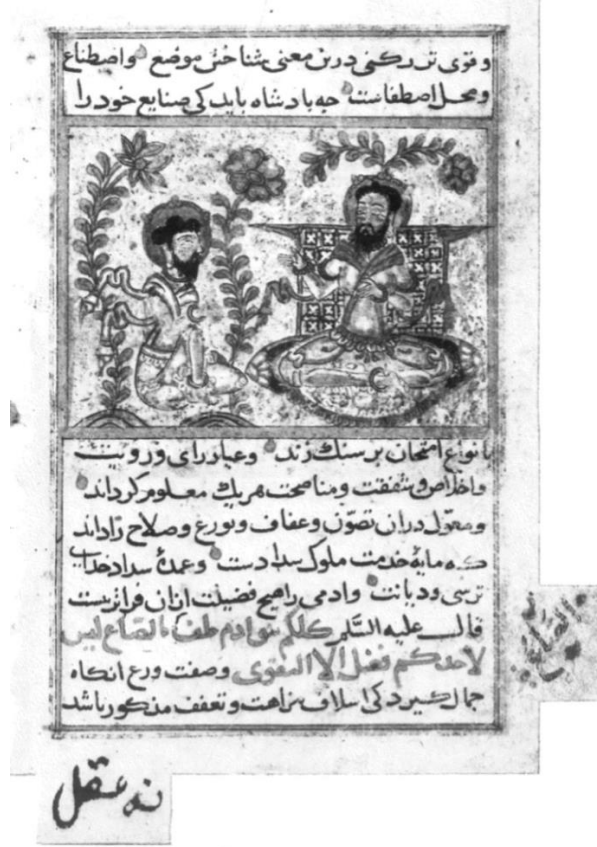 وقوی تر رکنی درین معنی شناختن موضع واصطناع
ومحل اصطفاست جه بادشاه باید کی صنایع خود را
بانواع امتحان بر سنک زند وعیار رای ورویت
واخلاص وشفقت ومناصحت هر یک معلوم کرداند
ومعول دران تصون وعفاف وتورع وصلاح را داند
که مایهٔ خدمت ملوک سدادست وعمدهٔ سداد خدای
ترسی ودیانت وادمی را هیچ فضیلت ازان فراتر نیست
قال علیه السلم کلکم بنو ادم طف الصاع لیس
لاحد علی احد فضل الا بالتقوی وصفت ورع انکاه
جمال کیرد کی اسلاف بنزاهت وتعفف مذکور باشد
الصاع
نه عقل